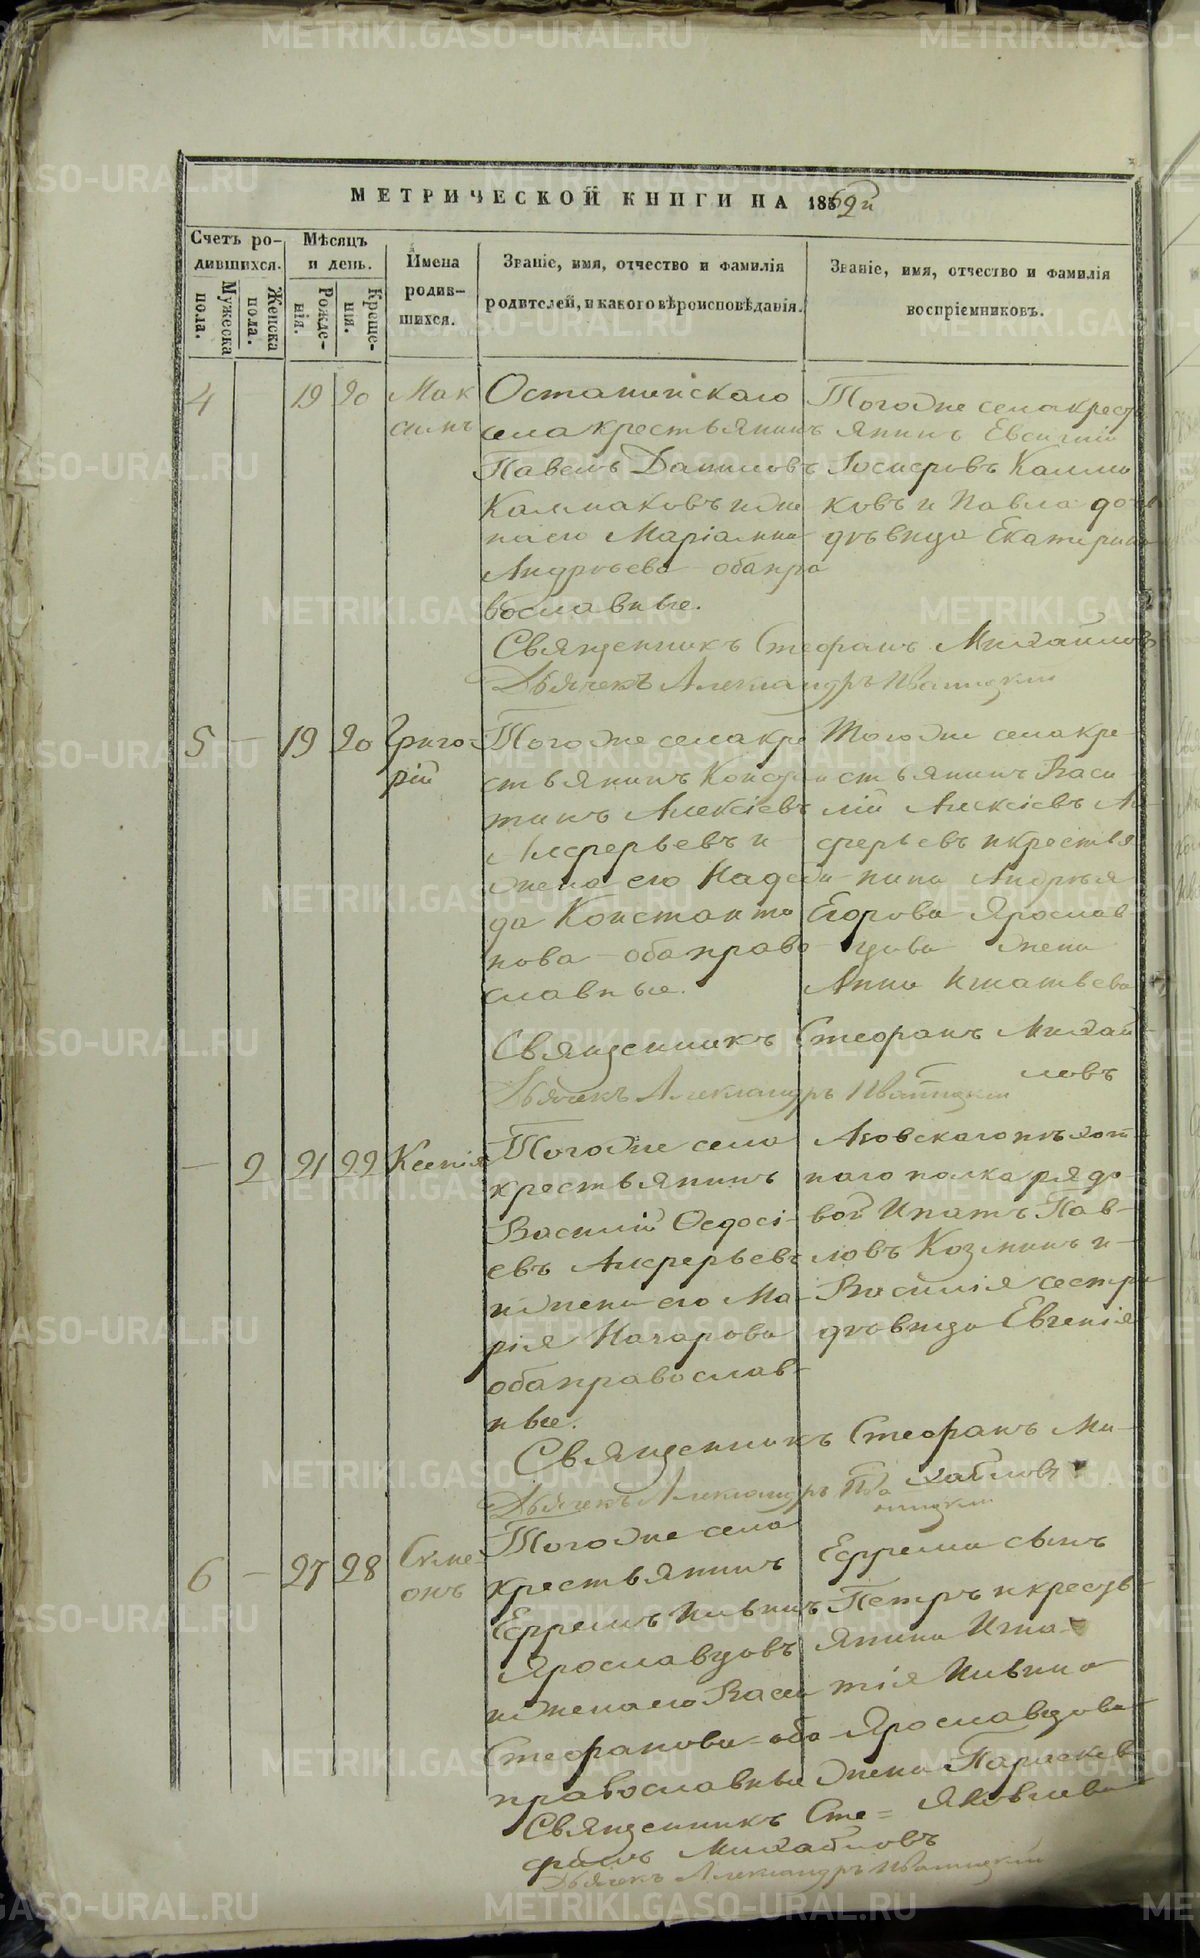 МЕТРИЧЕСКОЙ КНИГИ НА 1862й
Счетъ ро-
дившихся.
Мужеска
пола.
Женска
пола.
Мѣсяцъ
и день.
Рожде-
нія.
Креще-
нія.
Имена
родив-
шихся.
Званіе, имя, отчество и фамилія
родителей, и какого вѣроисповѣданія.
Званіе, имя, отчество и фамилія
воспріемниковъ.
4 19 20
Мак
симъ
Останинскаго
села крестьянинъ
Павелъ Даниловъ
Калмаковъ и же
на его Маріамна
Андреева оба пра
вославные.
Тогоже села кресть
янинъ Евсигній
Калма
ковъ и Павла дочь
дѣвица Екатерина
Священникъ Стефанъ Михайловъ
Дьячекъ Александръ Иваницкій
5 — 19 20
Григо-
рій
Тогоже села кре
стьянинъ Констан
тинъ Алексіевъ
Алферьевъ и
жена его Надеж
да Константи
нова оба право
славные.
Тогоже села кре-
стьянинъ Васи-
лій Алексіевъ Ал-
ферьевъ и крестья
нина Андрея
Егорова Ярослав-
цова жена
Анна Игнатьева
Священникъ Стефанъ Михай-
ловъ
Дьячекъ Александръ Иваницкій
— 2 21 22
Ксенія
Тогоже села
крестьянинъ
Василій Ѳедосі-
евъ Алферьевъ
и жена его Ма-
рія Назарова
оба православ-
ные.
Азовскаго пѣхот-
наго полка рядо-
вой Ипатъ Пав-
ловъ Козминъ и
Василія сестра
дѣвица Евгенія
Священникъ Стефанъ Ми-
хайловъ
Дьячекъ Александръ Ива
ницкій
6 — 27 28
Симе
онъ
Тогоже села
крестьянинъ
Ефремъ Ильинъ
Ярославцовъ
и жена его Васса
Стефанова оба
православные
Ефрема сынъ
Петръ и кресть-
янина Игна-
тія Ильина
Ярославцова
жена Параскева
Яковлева
Священникъ Сте=
фанъ Михайловъ
Дьячекъ Александръ Иваницкій
METRIKI.GASO-URAL.RU